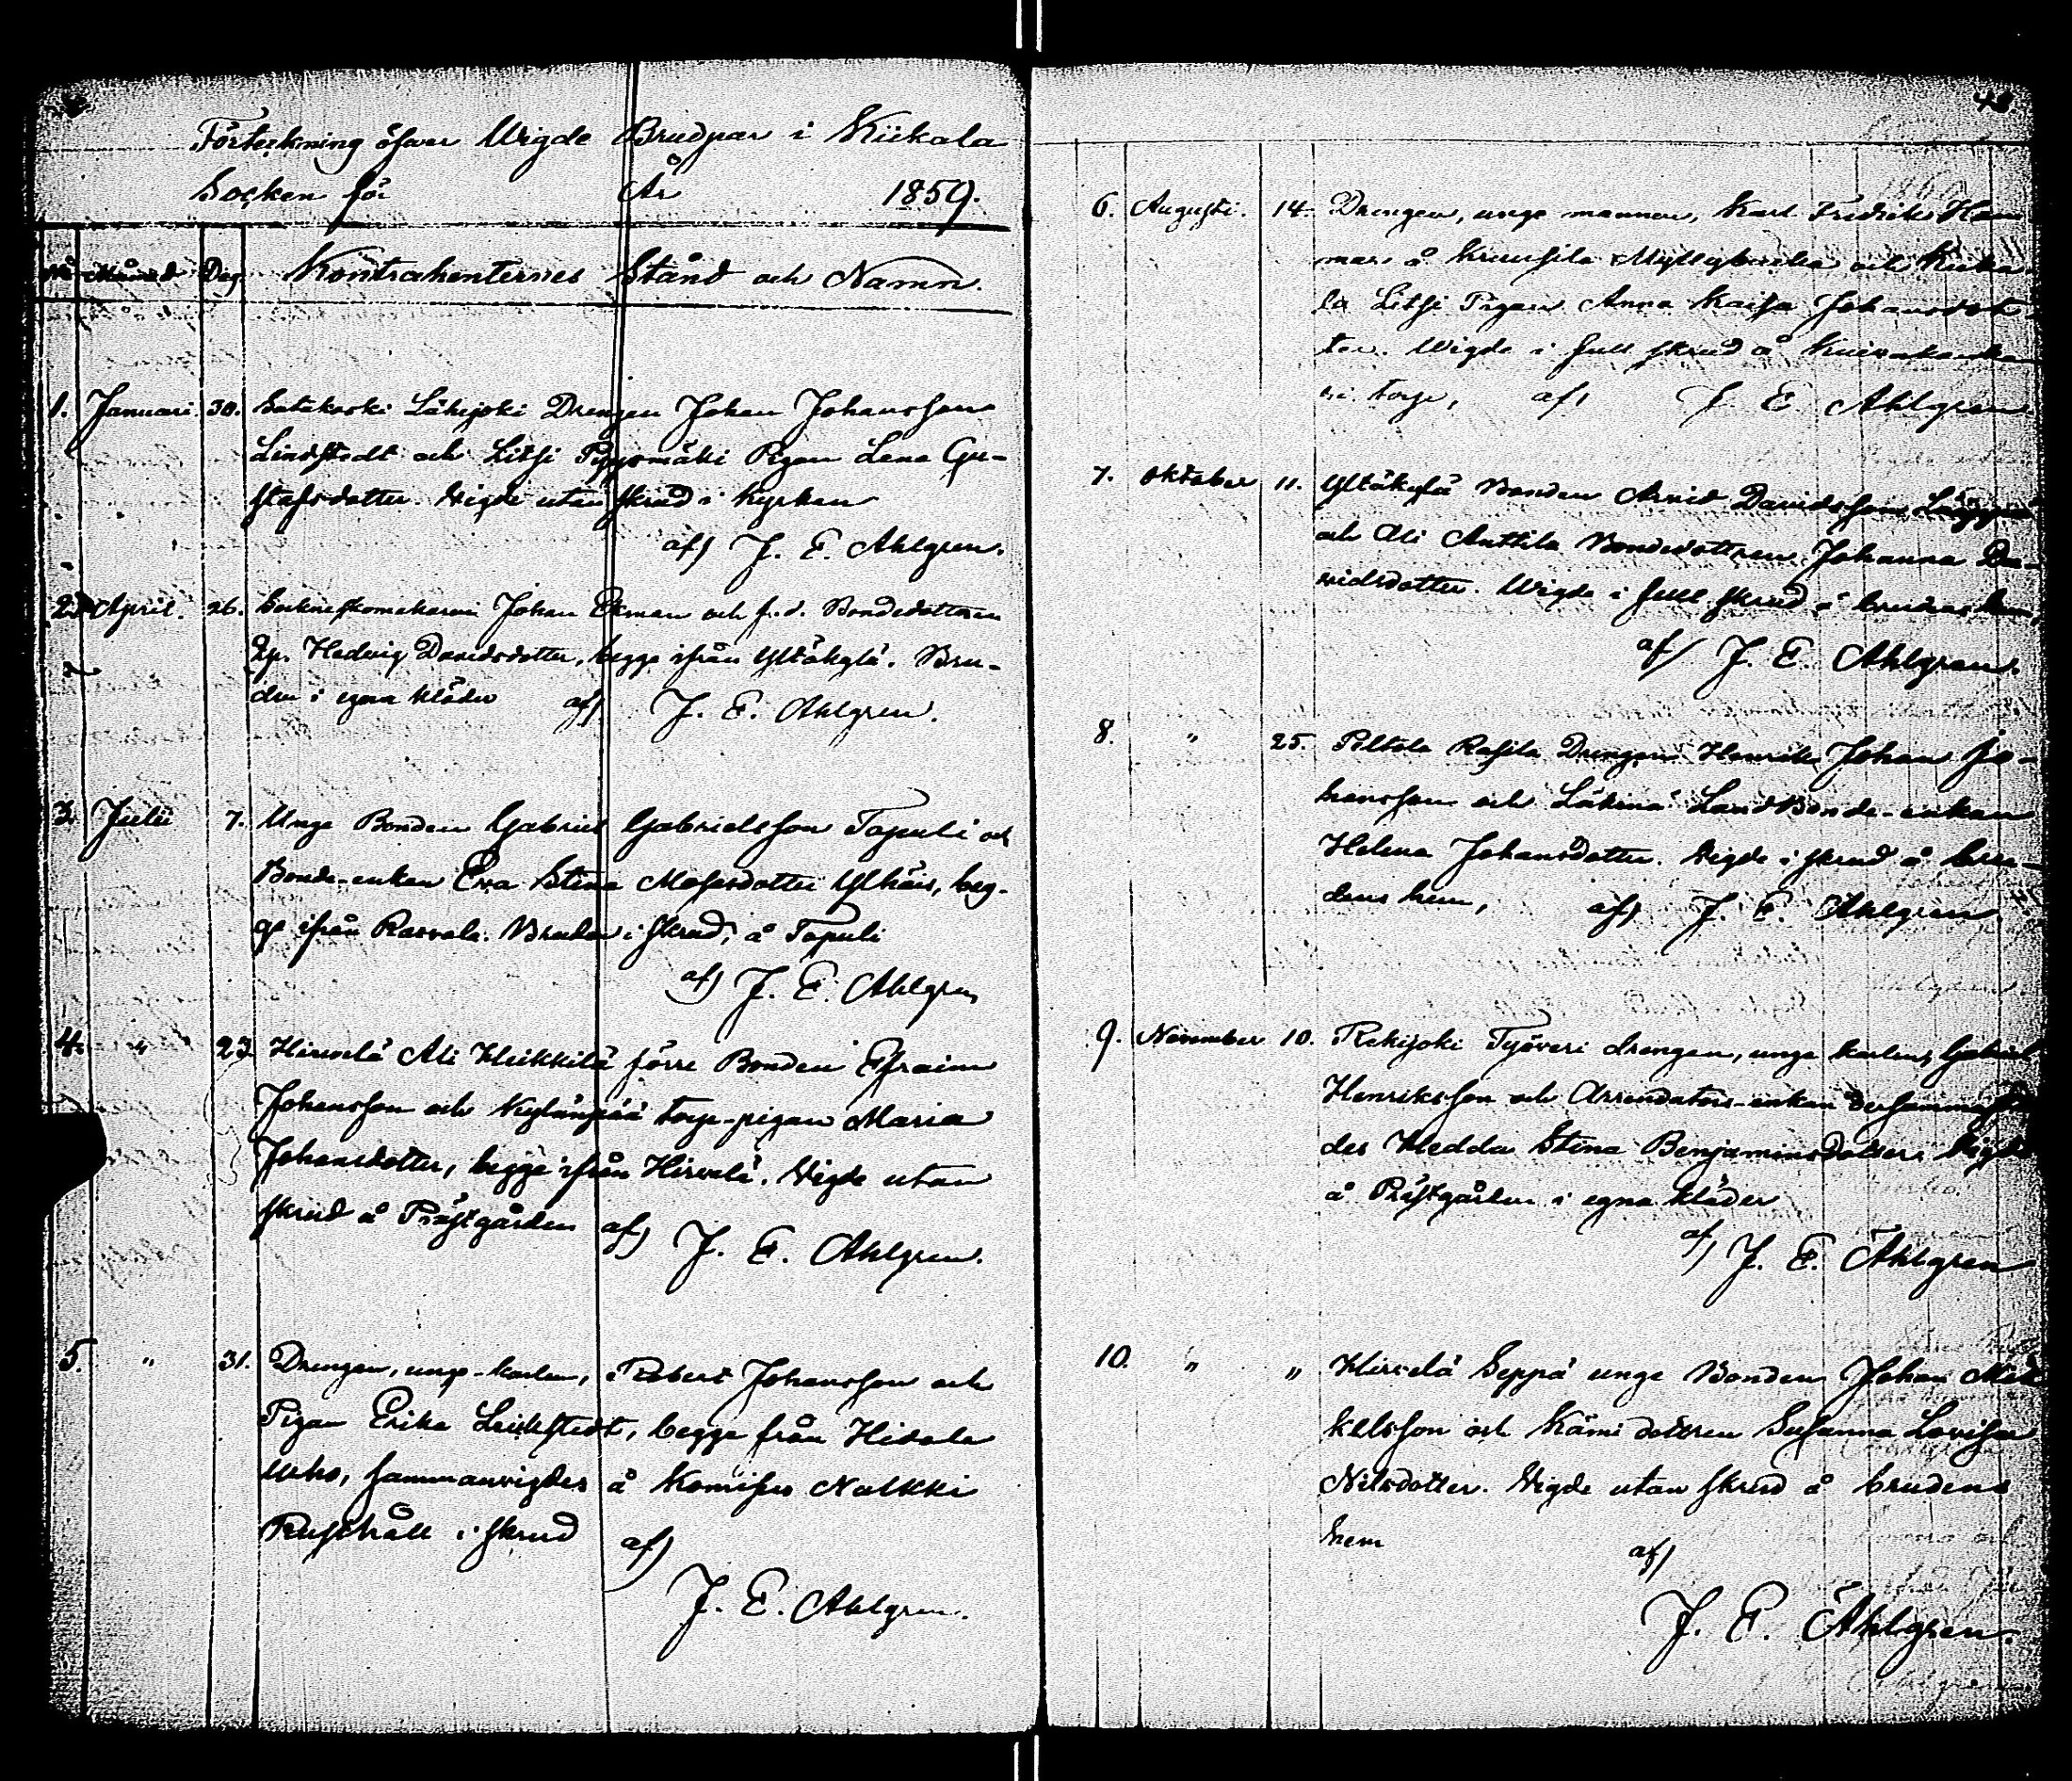 Förteckning öfwer Wigde Brudpar i Kiikala
Socken för År 1859.
No Månad Dag Kontrahenternes Stånd och Namn.
1. Januari 30. Satakoski Lähijoki Drengen Johan Johansson
Lindstedt och Litsi Pigan Lena Gu-
stafsdotter. Vigde utan skrud i kyrkan
af) J. E. Ahlgren.
2. April. 26. Sockneskomakaren Johan Ekman och f.d. Bondedottren
Hedvig Davidsdotter, begge ifrån Yltäkylä. Bru-
den i egna kläder af) J. E. Ahlgren.
3. Julii 7. Unge Bonden Gabriel Gabrielsson Tapuli och
Bonde-enkan Eva Stina Mosesdotter Ylhäis, beg-
ge ifrån Rasvala. Bruden i skrud, å Tapuli
af) J. E. Ahlgren
4. " 23. Hirvelä Ali Heikkilä förre Bonden Efraim
Johansson och torp-pigan Maria
Johansdotter, begge ifrån Hirvelä. Vigde utan
skrud å Prästgården af) J. E. Ahlgren.
5. " 31. Drengen, unge-karlen, Robert Johansson och
Pigan Erika Lindstedt, begge från Hidola
Uvho, sammanvigdes å Komisuo Nalkki
Rusthåll i skrud af)
J. E. Ahlgren.
48
6. Augusti. 14. Drengen, unge mannen, Karl Fredrik Ham
mar å Kruusila och Kiika-
la Litsi Pigan Anna Kaisa Johansdot-
ter. Wigde i full skrud å
torp, af) J. E. Ahlgren.
7. Oktober 11. Yltäkylä Bonden Arvid Davidsson
och Ali Anttila Bondedottren Johanna Da-
vidsdotter. Wigde i full skrud å brudens hem,
af) J. E. Ahlgren.
8. " 25. Peltola Rasila Drengen Henrik Johan Jo-
hansson och Landbonde-enkan
Helena Johansdotter. Vigde i skrud å bru-
dens hem, af) J. E. Ahlgren
9. November 10. Rekijoki Työveri drengen, unge karlen, Gabriel
Henriksson och Arrendators-enkan dersammastä-
des Hedda Stina Benjaminsdotter. Vigde
å Prästgården i egna kläder
af) J. E. Ahlgren
10. " " Hirvelä Seppä unge Bonden Johan Mik
kelsson och Kämi dottren Susanna Lovisa
Nilsdotter. Vigde utan skrud å brudens
hem af)
J. E. Ahlgren.